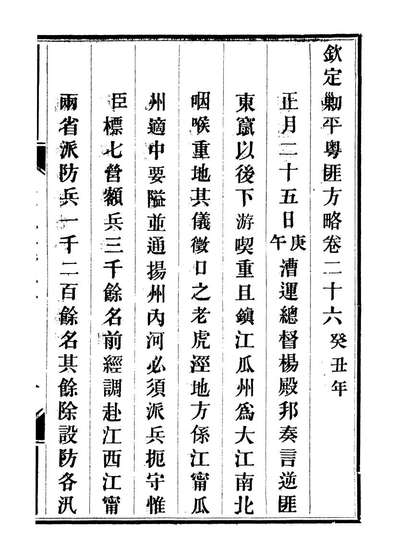 欽定剿平粵匪方略卷二十六 癸丑年
正月二十五日庚午漕運總督楊殿邦奏言逆匪
東竄以後下游喫重且鎮江瓜州爲大江南北
咽喉重地其儀徵口之老虎涇地方係江甯瓜
州適中要隘並通揚州內河必須派兵扼守惟
臣標七營額兵三千餘名前經調赴江西江甯
兩省派防兵一千二百餘名其餘除設防各汛